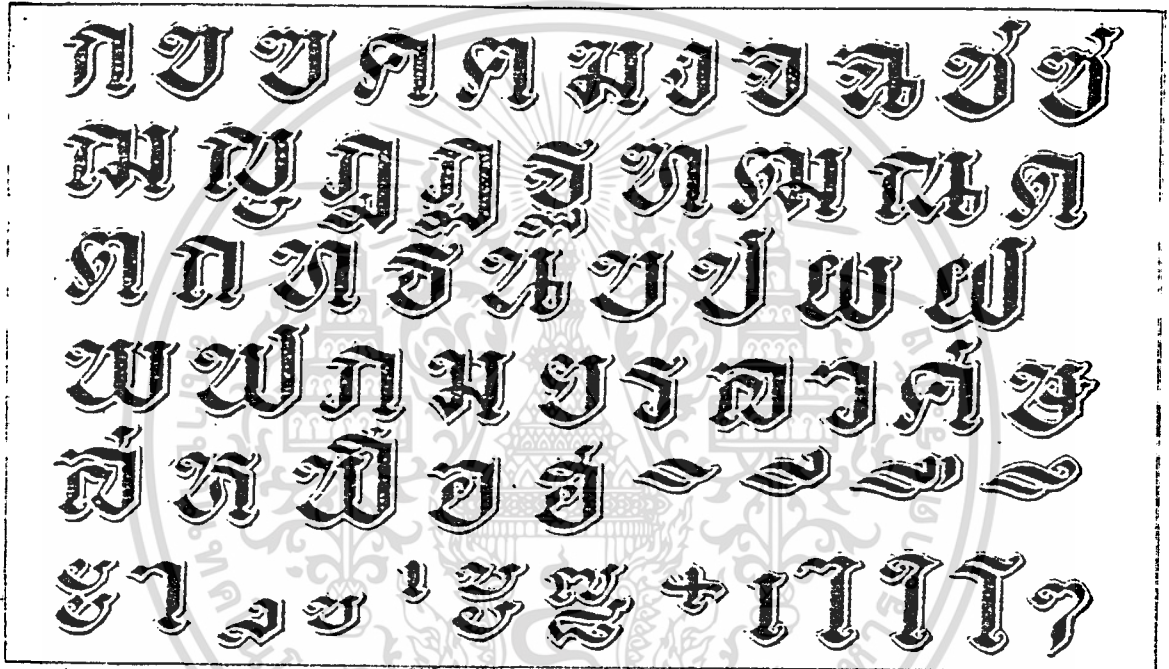 ก ข ฃ ค ฅ ฆ ง จ ฉ ช ซ
ฌ ญ ฎ ฏ ฐ ฑ ฒ ณ ด
ต ถ ท ธ น บ ป ผ ฝ
พ ฟ ภ ม ย ร ล ว ศ ษ
ส ห ฬ อ ฮ ิ ี ื ึ
ะ า ุ ั ่ ๋ เ า ใ โ ๆ